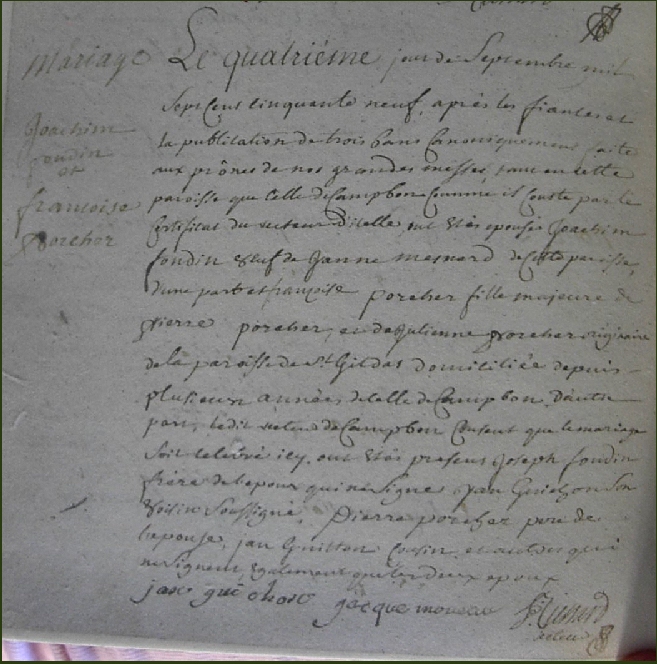 Mariage
Joachim
foudin
et
francoise
porcher
Le quatriéme jour de Septembre mil
Sept Cent Cinquante neuf, après les fiancéés et
la publication de trois bans Canoniquement faite
aux prônes de nos grandes messes, tant en cette
paroisse que Celle de Campbon Comme il Conste par le
Certificat du recteur d'icelle, ont étés épousés Joachim
foudin veuf de Janne mesnard de Cette paroisse,
d'une part et françoise porcher fille majeure de
pierre porcher, et de Julienne porcher originaire
de la paroisse de St Gildas domiciliée depuis
plusieurs années, de celle de Campbon d'autre
part, ledit recteur de Campbon Consent que le mariage
Soit celebré icy. ont étés presens Joseph foudin
frère de l'epoux qui ne signe, jan Guichon Son
voisin soussigné, Pierre porcher pere de
l'epouse, jan Guitton Cousin, et autres qui
ne signent également que les deux epoux
jan guichon jacque moreau
recteur